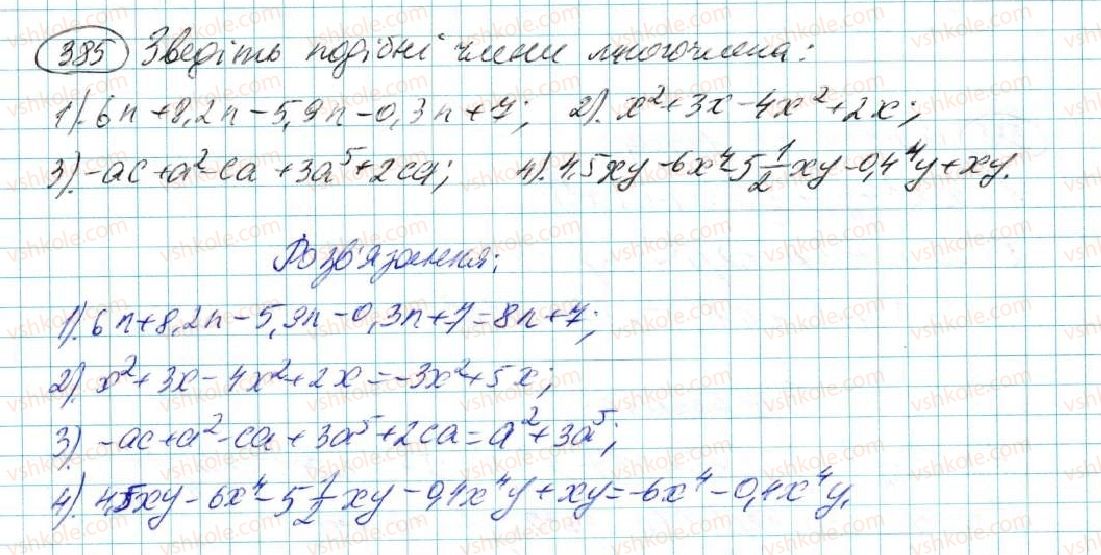 385 Зведіть подібні члени многочлена:
1). 6n+8,2n-5,9n-0,3n+7; 2). x²+3x-4x²+2x;
3). -ac+a²-ca+3a⁵+2ca; 4). 4,5xy-6x⁴-5 1/2 xy-0,4⁴y+xy.
Розв'язання:
1). 6n+8,2n-5,9n-0,3n+7=8n+7;
2). x²+3x-4x²+2x=-3x²+5x;
3). -ac+a²-ca+3a⁵+2ca=a²+3a⁵;
4). 4,5xy-6x⁴-5 1/2 xy-0,4x⁴y+xy=-6x⁴-0,4x⁴y.